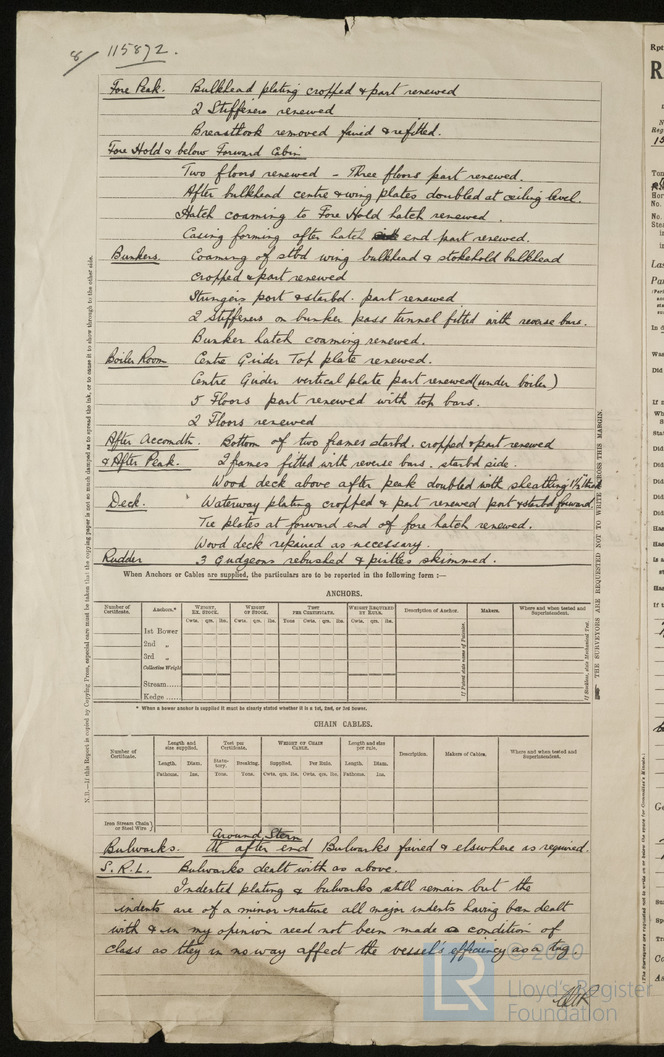 8/ 115892.
Fore Peak. Bulkhead plating cropped & part renewed
2 Stiffeners renewed
Breasthook removed faired & refitted.
Fore Hold & below Forward Cabin
Two floors renewed - Three floors part renewed.
After bulkhead centre & wing plates doubled at ceiling level.
Hatch coaming to Fore Hold hatch renewed.
Casing forming after hatch end part renewed.
Bunkers. Coaming of stbd wing bulkhead & stokehold bulkhead
cropped & part renewed
Stringers port & starbd. part renewed
2 stiffeners on bunker pass tunnel fitted with reverse bars.
Bunker hatch coaming renewed.
Boiler Room Centre Girder Top plate renewed.
Centre Girder vertical plate part renewed (under boiler)
5 Floors part renewed with top bars.
2 Floors renewed
After Accomdtn. Bottom of two frames starbd. cropped & part renewed
& After Peak. 2 frames fitted with reverse bars. starbd side.
Wood deck above after peak doubled with sheathing 1½" thick
Deck. Waterway plating cropped & part renewed port & starbd forward.
Tie plates at forward end of fore hatch renewed.
Wood deck repaired as necessary.
Rudder 3 Gudgeons rebushed & pintles skimmed.
When Anchors or Cables are supplied, the particulars are to be reported in the following form :—
ANCHORS.
Number of Certificate. Anchors.* WEIGHT, EX. STOCK. WEIGHT OF STOCK. TEST PER CERTIFICATE. WEIGHT REQUIRED BY RULE. Description of Anchor. Makers. Where and when tested and Superintendent.
Cwts. qrs. lbs. Cwts. qrs. lbs. Tons Cwts. qrs. lbs. Cwts. qrs. lbs.
1st Bower
2nd „
3rd „
Collective Weight
Stream......
Kedge ......
If Patent state name of Patentee.
If Stockless, state Mechanical Test.
* When a bower anchor is supplied it must be clearly stated whether it is a 1st, 2nd, or 3rd Bower.
CHAIN CABLES.
Number of Certificate. Length and size supplied. Test per Certificate. WEIGHT OF CHAIN CABLE. Length and size per rule. Description. Makers of Cables. Where and when tested and Superintendent.
Length. Diam. Statutory. Breaking. Supplied. Per Rule. Length. Diam.
Fathoms. Ins. Tons. Tons. Cwts. qrs. lbs. Cwts. qrs. lbs. Fathoms. Ins.
Iron Stream Chain or Steel Wire
Around Stern
Bulwarks. At after end Bulwarks faired & elsewhere as required.
S.R.L. Bulwarks dealt with as above.
Indented plating & bulwarks still remain but the
indents are of a minor nature all major indents having been dealt
with & in my opinion need not been made a condition of
class as they in no way affect the vessel's efficiency as a tug.
N.B.—If this Report is copied by Copying Press, especial care must be taken that the copying paper is not so much damped as to spread the ink, or to cause it to show through to the other side.
THE SURVEYORS ARE REQUESTED NOT TO WRITE ACROSS THIS MARGIN.
LR © 2020
Lloyd's Register
Foundation